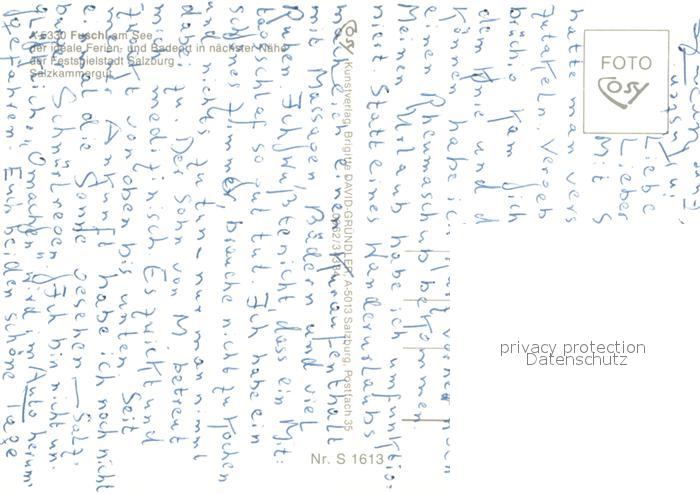 A-5330 Fuschl am See
der ideale Ferien- und Badeort in nächster Nähe
der Festspielstadt Salzburg
Salzkammergut
Cosy Kunstverlag, Brigitte DAVID-GRÜNDLER, A-5013 Salzburg, Postfach 35
FOTO
Cosy
Nr. S 1613
privacy protection
Datenschutz
Liebe
Lieber
Mit S
hatte man vers
zutückeln. Vergeb
büchio kam ich
dem Knie und d
können habe ich vorher noch
einen Rheumaschub bekommen.
Meinen Urlaub habe ich umfunktio-
niert. Statt eines Wanderurlaubs
mache ich einen Kuraufenthalt
mit Massagen Bädern und viel
Ruhen. Ich wußte nicht dass ein Mit-
tagsschlaf so gut tut. Ich habe ein
schönes Zimmer, brauche nicht zu kochen
und nichts zu tun - nur man nimmt
dabei zu. Der Sohn von M. betreut
mich medizinisch. Es zwickt und
zwackt von oben bis unten. Seit
meiner Ankunft habe ich noch nicht
einmal die Sonne gesehen - Salz-
burger Schnürlregen. Ich bin nicht un-
glücklich, "Omachen" wird im Auto herum-
gefahren. Euch beiden schöne Tage